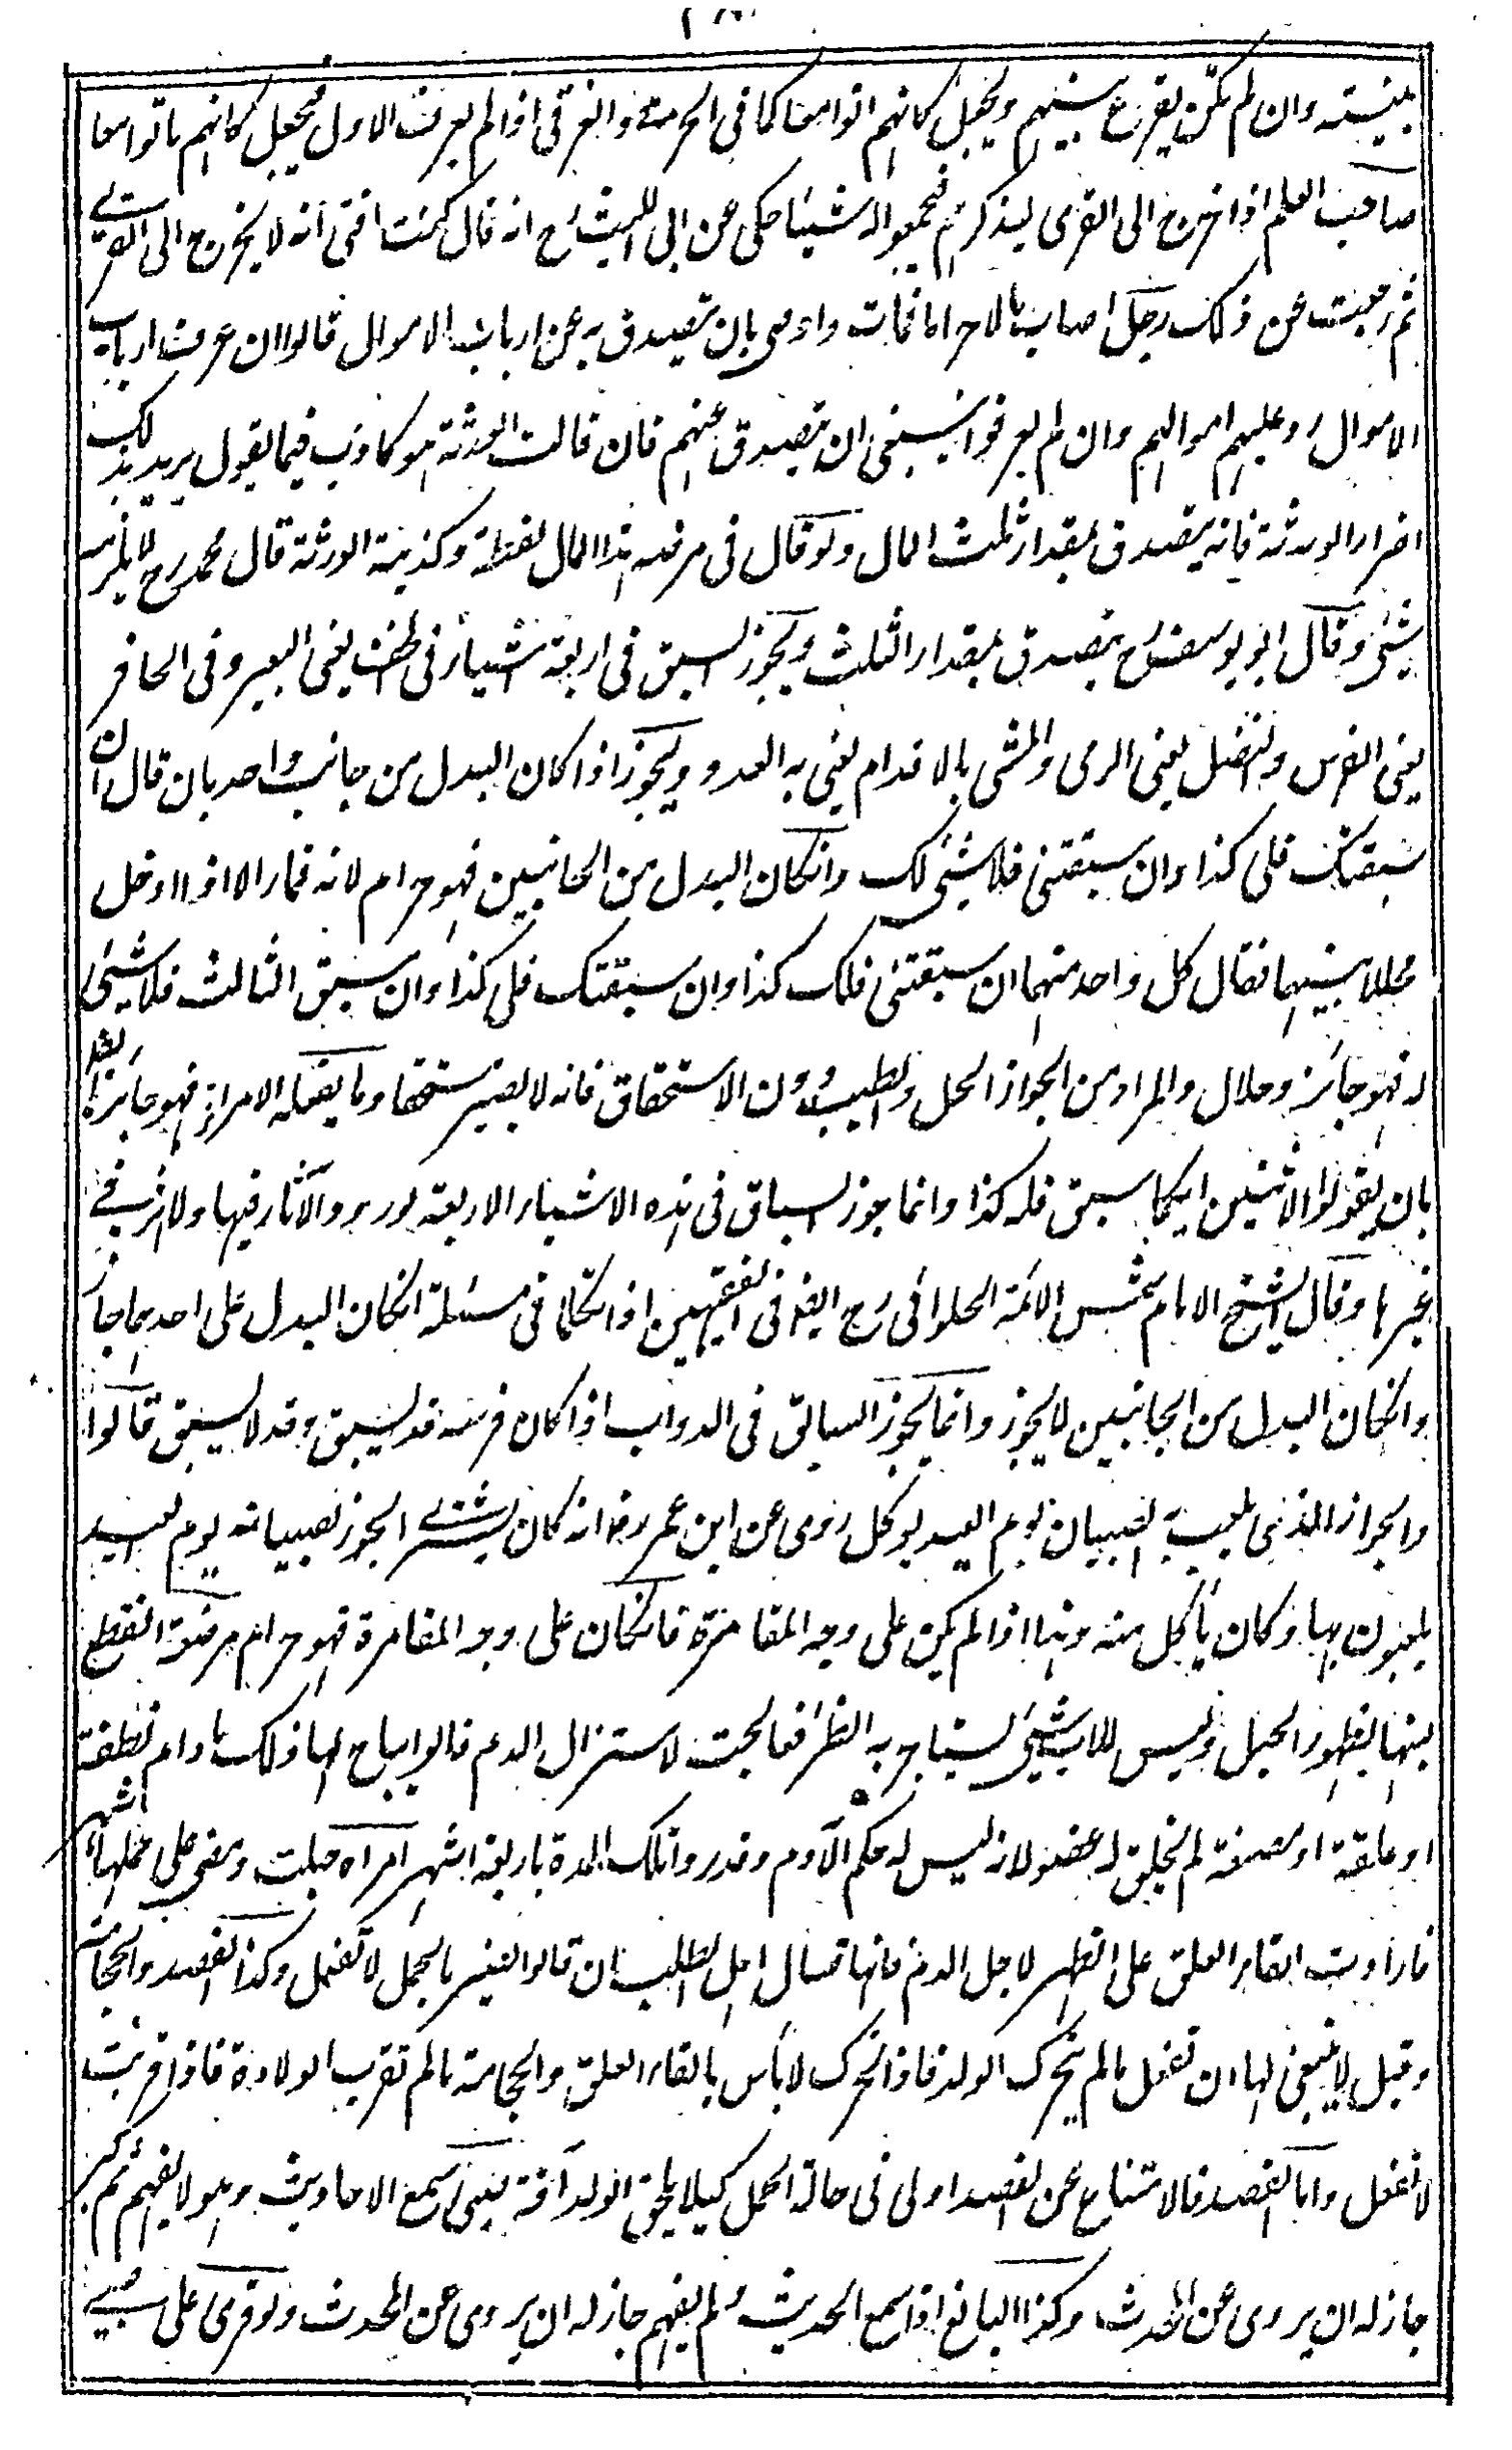 ببينته وان لم يكن يقرع بينهم ويجعل كانهم اتوا معا كما في الحرقى والغرقى اذا لم يعرف الاول يجعل كانهم ماتوا معا
صاحب العلم اذا خرج الى القرى ليذكرهم فيجمعوا له شيئا حكى عن ابى الليث رح انه قال كنت افتى انه لا يخرج الى القرى
ثم رجعت عن ذلك رجل اصاب مالا حراما فمات واوصى بان يتصدق به عن ارباب الاموال قالوا ان عرفت ارباب
الاموال رد عليهم اموالهم وان لم يعرفوا ينبغى ان يتصدق عنهم فان قالت الورثة هو كاذب فيما يقول يريد بذلك
اضرار الورثة فانه يتصدق بمقدار ثلث المال ولو قال فى مرضه هذا المال لقطة وكذبته الورثة قال محمد رح لا يلزمه
شئ وقال ابو يوسف رح يتصدق بمقدار الثلث ويجوز السبق فى اربعة اشياء فى الخف يعنى البعير وفى الحافر
يعنى الفرس والنضل يعنى الرمى والمشى بالاقدام يعنى به العدو ويجوز اذا كان البدل من جانب واحد بان قال ان
سبقتك فلى كذا وان سبقتنى فلا شئ لك وانكان البدل من الجانبين فهو حرام لانه قمار الا اذا ادخل
محللا بينهما فقال كل واحد منهما ان سبقتنى فلك كذا وان سبقتك فلى كذا وان سبق الثالث فلا شئ
له فهو جائز وحلال والمراد من الجواز الحل والطيب دون الاستحقاق فانه لا يصير مستحقا وما يفعله الامراء فهو جائز ايضا
بان يقولوا لاثنين ايكما سبق فله كذا وانما جوز السباق فى هذه الاشياء الاربعة لورود الآثار فيها ولا اثر فى
غيرها وقال الشيخ الامام شمس الائمة الحلوائى رح ايضا فى الفقيهين اذا تكلما فى مسئلة انكان البدل على احدهما جاز
وانكان البدل من الجانبين لا يجوز وانما يجوز السباق فى الدواب اذا كان فرسه قد يسبق وقد لا يسبق قالوا
والجواز الذى يلعب به الصبيان يوم العيد يوكل روى عن ابن عمر رض انه كان يشترى الجوز لصبيانه يوم العيد
يلعبون بها وكان يأكل منه وهذا اذا لم يكن على وجه المقامرة فانكان على وجه المقامرة فهو حرام مرضعة انقطع
لبنها لظهور الحبل وليس للاب شئ يستاجر به الظئر فعالجت لاستنزال الدم قالوا يباح لها ذلك ما دام نطفة
او علقة او مضغة لم يخلق له عضو لانه ليس له حكم الآدم وقدروا تلك المدة باربعة اشهر امراة حبلت ومضى على حملها اشهر
فارادت القاء العلق على الظهر لاجل الدم فانها تسال اهل الطب ان قالوا يضر بالحمل لا تفعل وكذا الفصد والحجامة
وقيل لا ينبغى لها ان تفعل ما لم يتحرك الولد فاذا تحرك لا بأس بالقاء العلق والحجامة ما لم تقرب الولادة فاذا قربت
لا تفعل واما الفصد فالامتناع عن الفصد اولى فى حالة الحمل كيلا يلحق الولد آفة صبى سمع الاحاديث وهو لا يفهم ثم كبر
جاز له ان يروى عن المحدث وكذا البالغ اذا سمع الحديث ولم يفهم جاز له ان يروى عن المحدث ولو قرئ على صبى